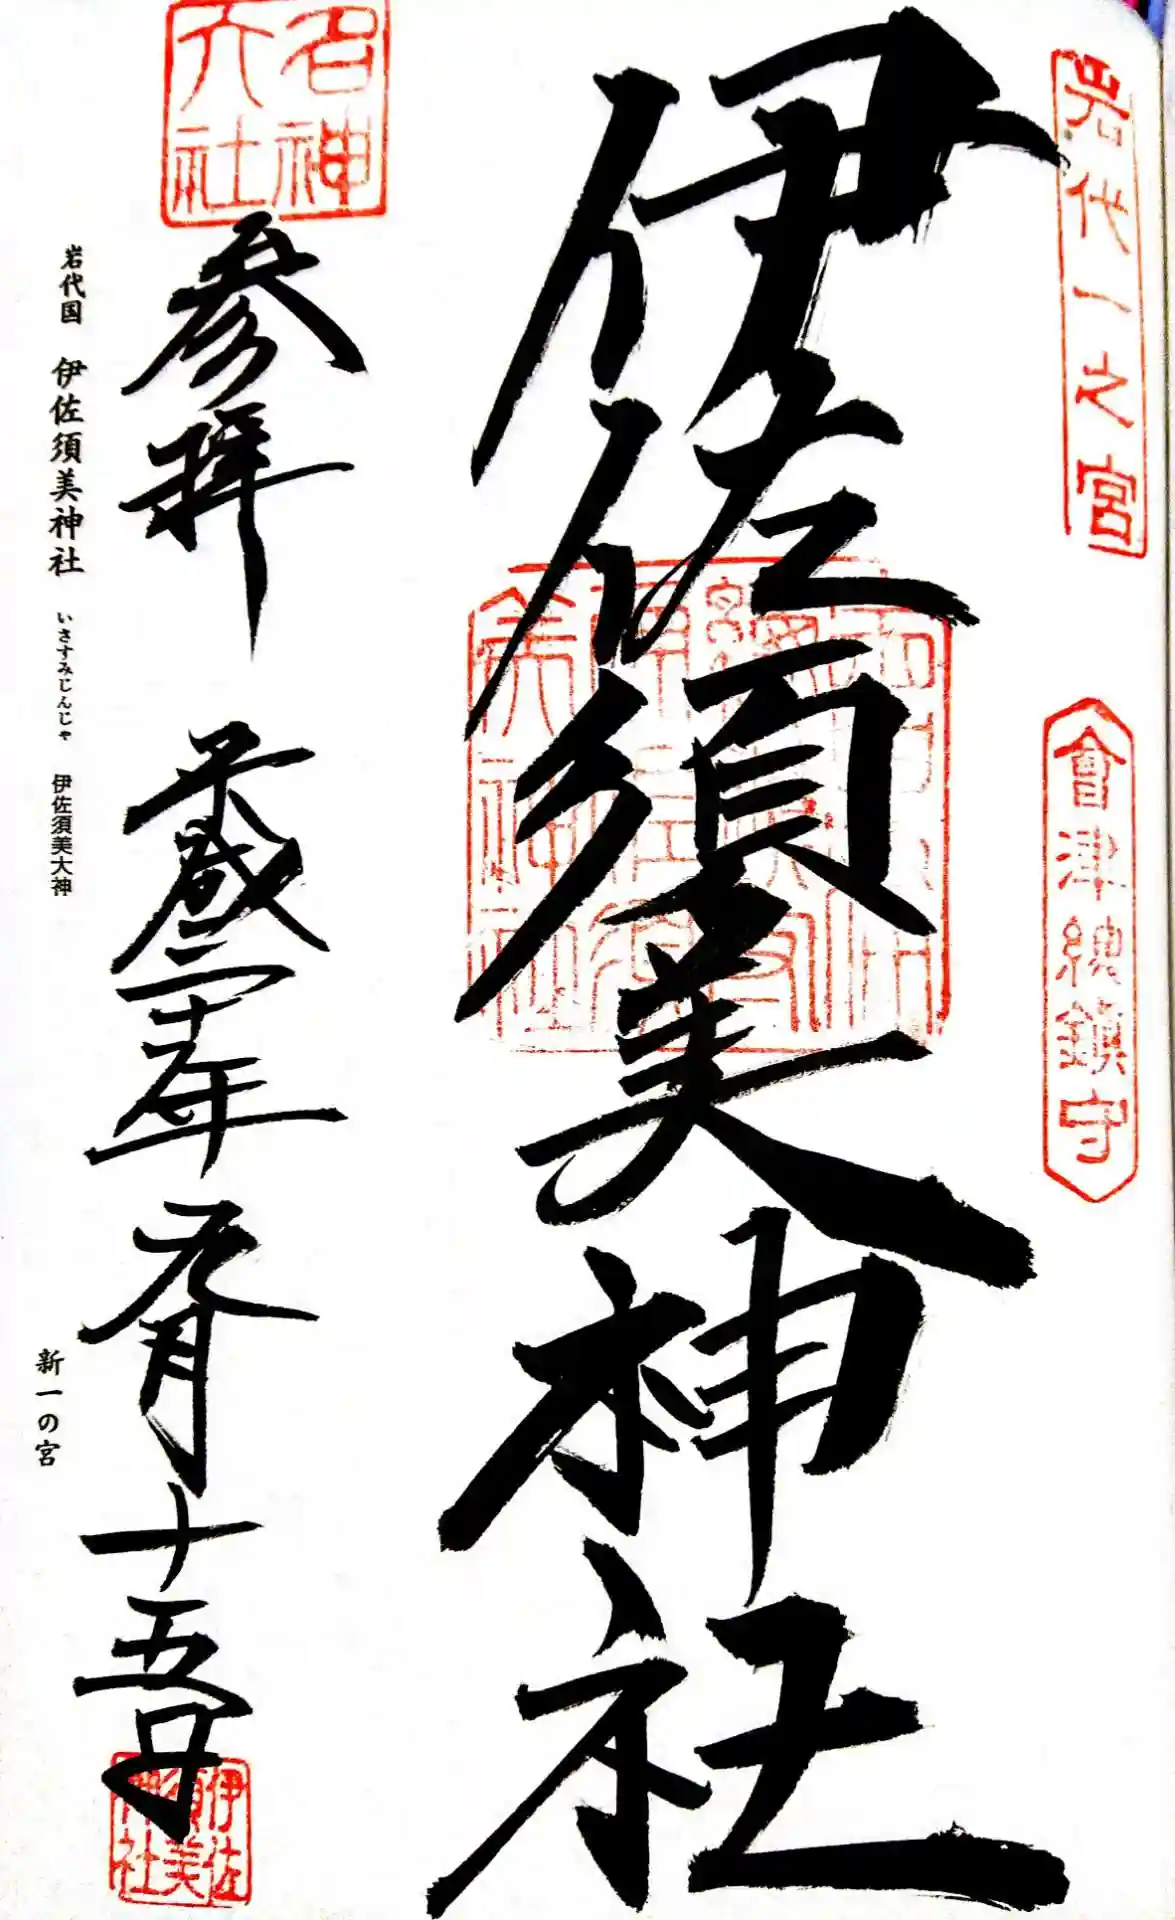 岩代一之宮
會津總鎮守
伊佐須美神社
名神
大社
参拝
平成二十 年 月十五日
伊佐
須美
神社
岩代国 伊佐須美神社 いさすみじんじゃ 伊佐須美大神
新一の宮